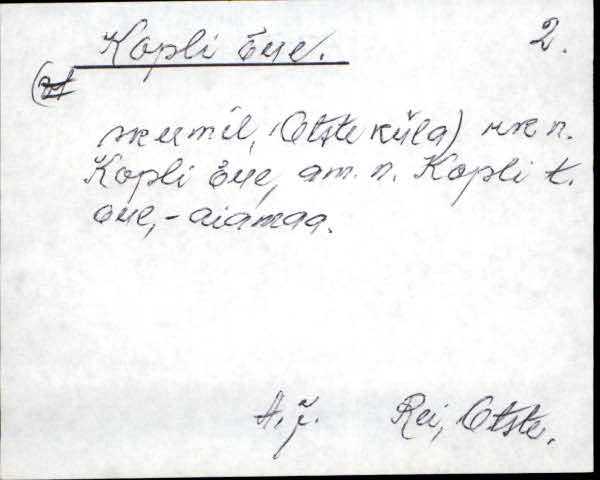 Kopli Õue. 2.
(Otste küla) rkr.
Kopli Õue, am. n. Kopli t.
Õue, - aiamaa.
A. J. Rei, Otste.